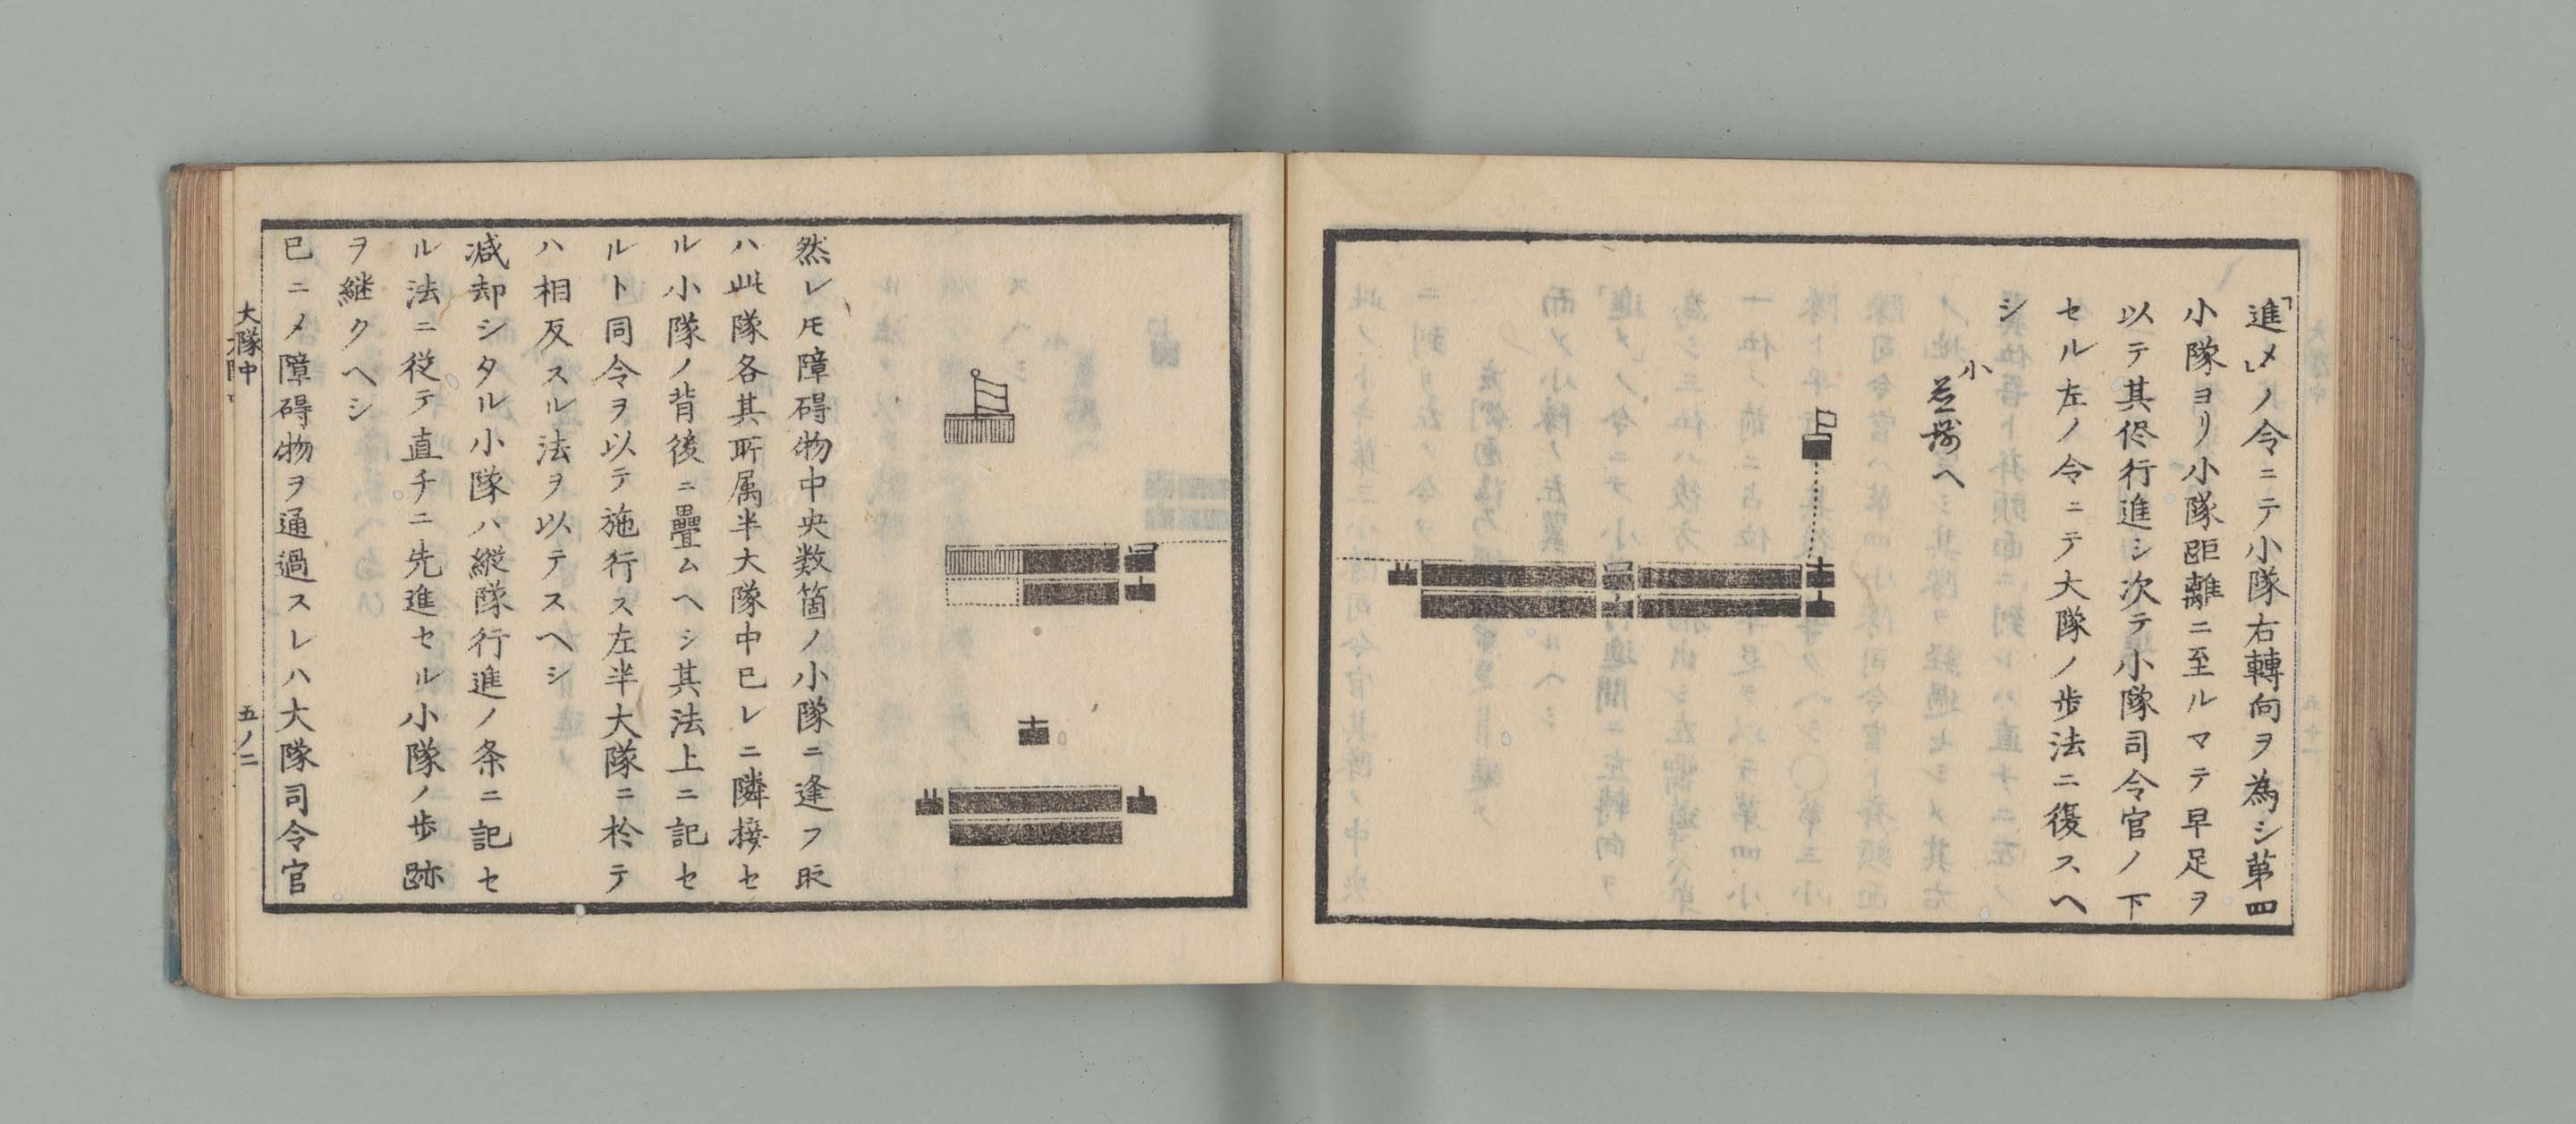 「進メ」ノ令ニテ小隊右轉向ヲ為シ第四
小隊ヨリ小隊距離ニ至ルマテ早足ヲ
以テ其侭行進シ次テ小隊司令官ノ下
セル左ノ令ニテ大隊ノ歩法ニ復スヘ
シ
小
並揃へ
然レ𪜈障碍物中央数箇ノ小隊ニ逢フ𪜈
ハ此隊各其所属半大隊中已レニ隣接セ
ル小隊ノ背後ニ疊ムヘシ其法上ニ記セ
ルト同令ヲ以テ施行ス左半大隊ニ於テ
ハ相反スル法ヲ以テスヘシ
減却シタル小隊ハ縦隊行進ノ条ニ記セ
ル法ニ従テ直チニ先進セル小隊ノ歩跡
ヲ継クヘシ
已ニメ障碍物ヲ通過スレハ大隊司令官
大隊中
五ノ二